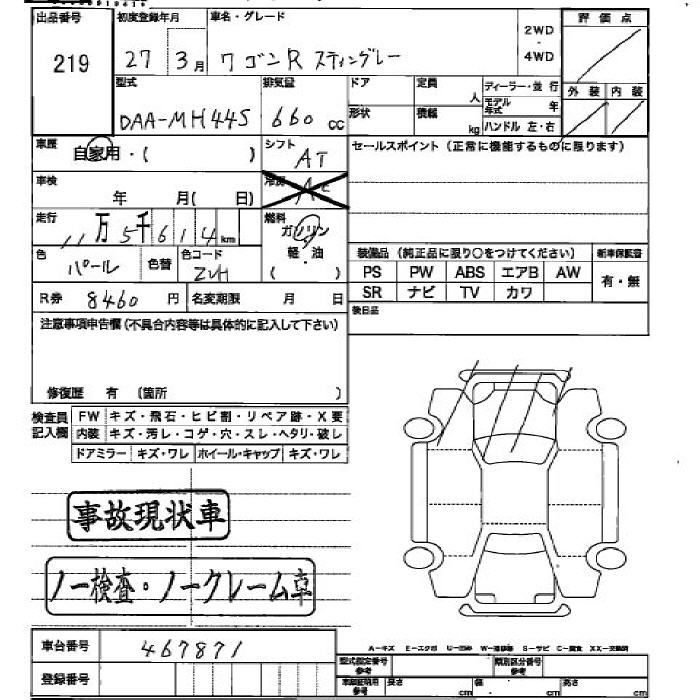 出品番号 初度登録年月 車名・グレード 2WD ・ 4WD 評価点
219 27年 3月 ワゴンR スティングレー
型式 排気量 ドア 定員 人 ディーラー・並行 外装 内装
DAA-MH44S 660cc 形状 積載 kg モデル年式 年
ハンドル 左・右
車歴 自家用・( ) シフト AT セールスポイント(正常に機能するものに限ります)
車検 年 月( 日) 冷房 AC
走行 11万5千614km 燃料 ガソリン・軽油
色 パール 色替 色コード ZVH 装備品(純正品に限り○をつけてください) 新車保証書
PS PW ABS エアB AW 有・無
SR ナビ TV カワ
R券 8460円 名変期限 月 日 後日品
注意事項申告欄(不具合内容等は具体的に記入して下さい)
修復歴 有 (箇所 )
検査員記入欄 FW キズ・飛石・ヒビ割・リペア跡・X要
内装 キズ・汚レ・コゲ・穴・スレ・ヘタリ・破レ
ドアミラー キズ・ワレ ホイール・キャップ キズ・ワレ
事故現状車
ノー検査・ノークレーム車
車台番号 467871 A-キズ E-エクボ U-凹み W-補修跡 S-サビ C-腐食 XX-交換済
型式指定番号 参考 類別区分番号 参考
登録番号 車庫証明用 参考 長さ cm 幅 cm 高さ cm